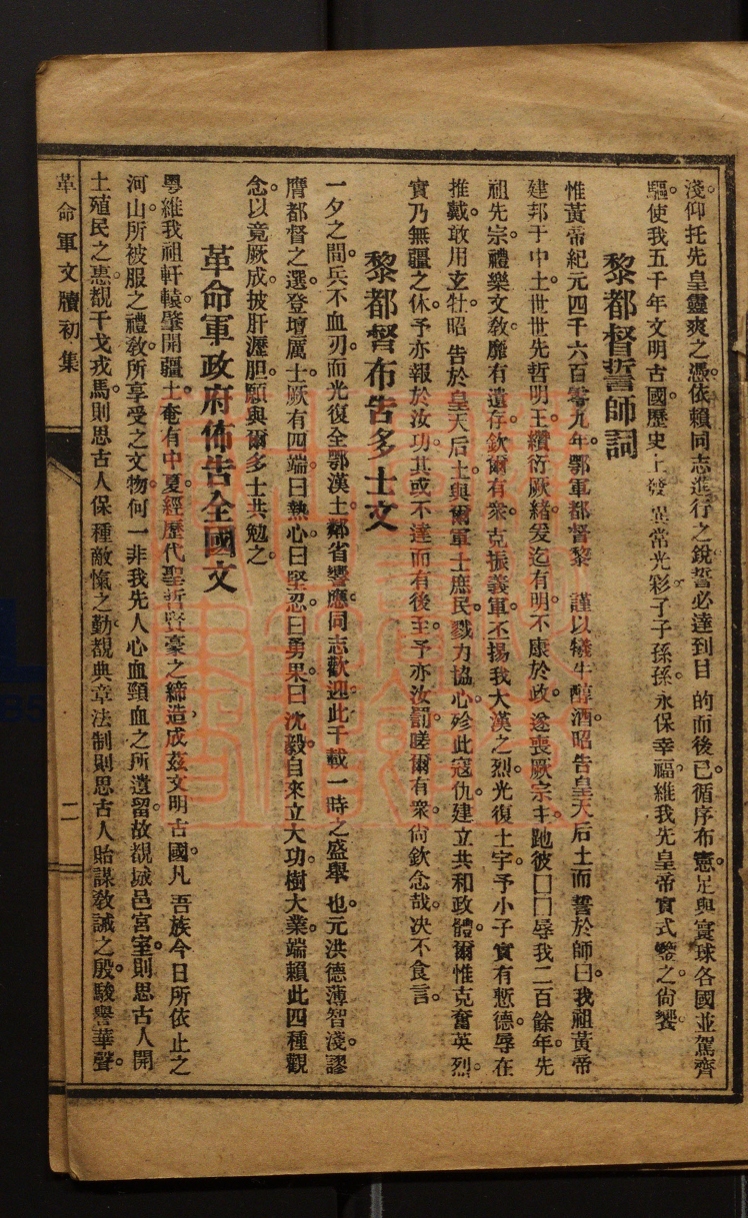 淺。仰托先皇靈爽之憑依。賴同志進行之銳。誓必達到目的而後已。循序布憲。足與寰球各國並駕齊
驅。使我五千年文明古國歷史上發異常光彩。子子孫孫。永保幸福。維我先皇帝實式鑒之。尙饗。
黎都督誓師詞
惟黃帝紀元四千六百零九年。鄂軍都督黎 謹以犧牛醇酒。昭告皇天后土而誓於師曰。我祖黃帝
建邦于中土。世世先哲明王。纘衍厥緒。爰迄有明。不康於政。遂喪厥宗主。虵彼囗囗。辱我二百餘年。先
祖先宗禮樂文敎。靡有遺存。欽爾有衆。克振義軍。丕揚我大漢之烈。光復土宇。予小子實有慙德。辱在
推戴。敢用玄牡。昭告於皇天后土。與爾軍士庶民。戮力協心。殄此寇仇。建立共和政體。爾惟克奮英烈。
實乃無疆之休。予亦報於汝功。其或不達而有後至。予亦汝罰。嗟爾有衆。尙欽念哉。决不食言。
黎都督布告多士文
一夕之間。兵不血刃。而光復全鄂漢土。鄰省響應。同志歡迎。此千載一時之盛舉也。元洪德薄智淺。謬
膺都督之選。登壇厲士。厥有四端。曰熱心。曰堅忍。曰勇果。曰沈毅。自來立大功。樹大業。端賴此四種觀
念。以竟厥成。披肝瀝胆。願與爾多士共勉之。
革命軍政府佈告全國文
粤維我祖軒轅。肇開疆土。奄有中夏。經歷代聖哲賢豪之締造。成茲文明古國。凡吾族今日所依止之
河山。所被服之禮敎。所享受之文物。何一非我先人心血頸血之所遺留。故覩城邑宮室。則思古人開
土殖民之惠。覩干戈戎馬。則思古人保種敵愾之勤。覩典章法制則思古人貽謀敎誡之殷。駿譽華聲。
革命軍文牘初集
二